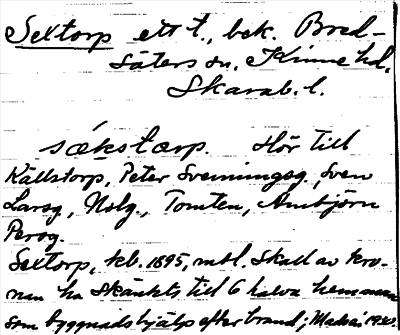 Sextorp ett t., bek. Bred-
säters sn. Kinne hd.
Skarab. l.
sækstærp. Hör till
Källstorp, Peter Svenningsg., Sven
Larsg, Nolg., Tomten, Ambjörn
Persg.
Sextorp, kb. 1895, mtl. Skall av kro-
nan ha skänkts till 6 halva hemman
som byggnadshjälp efter brand;